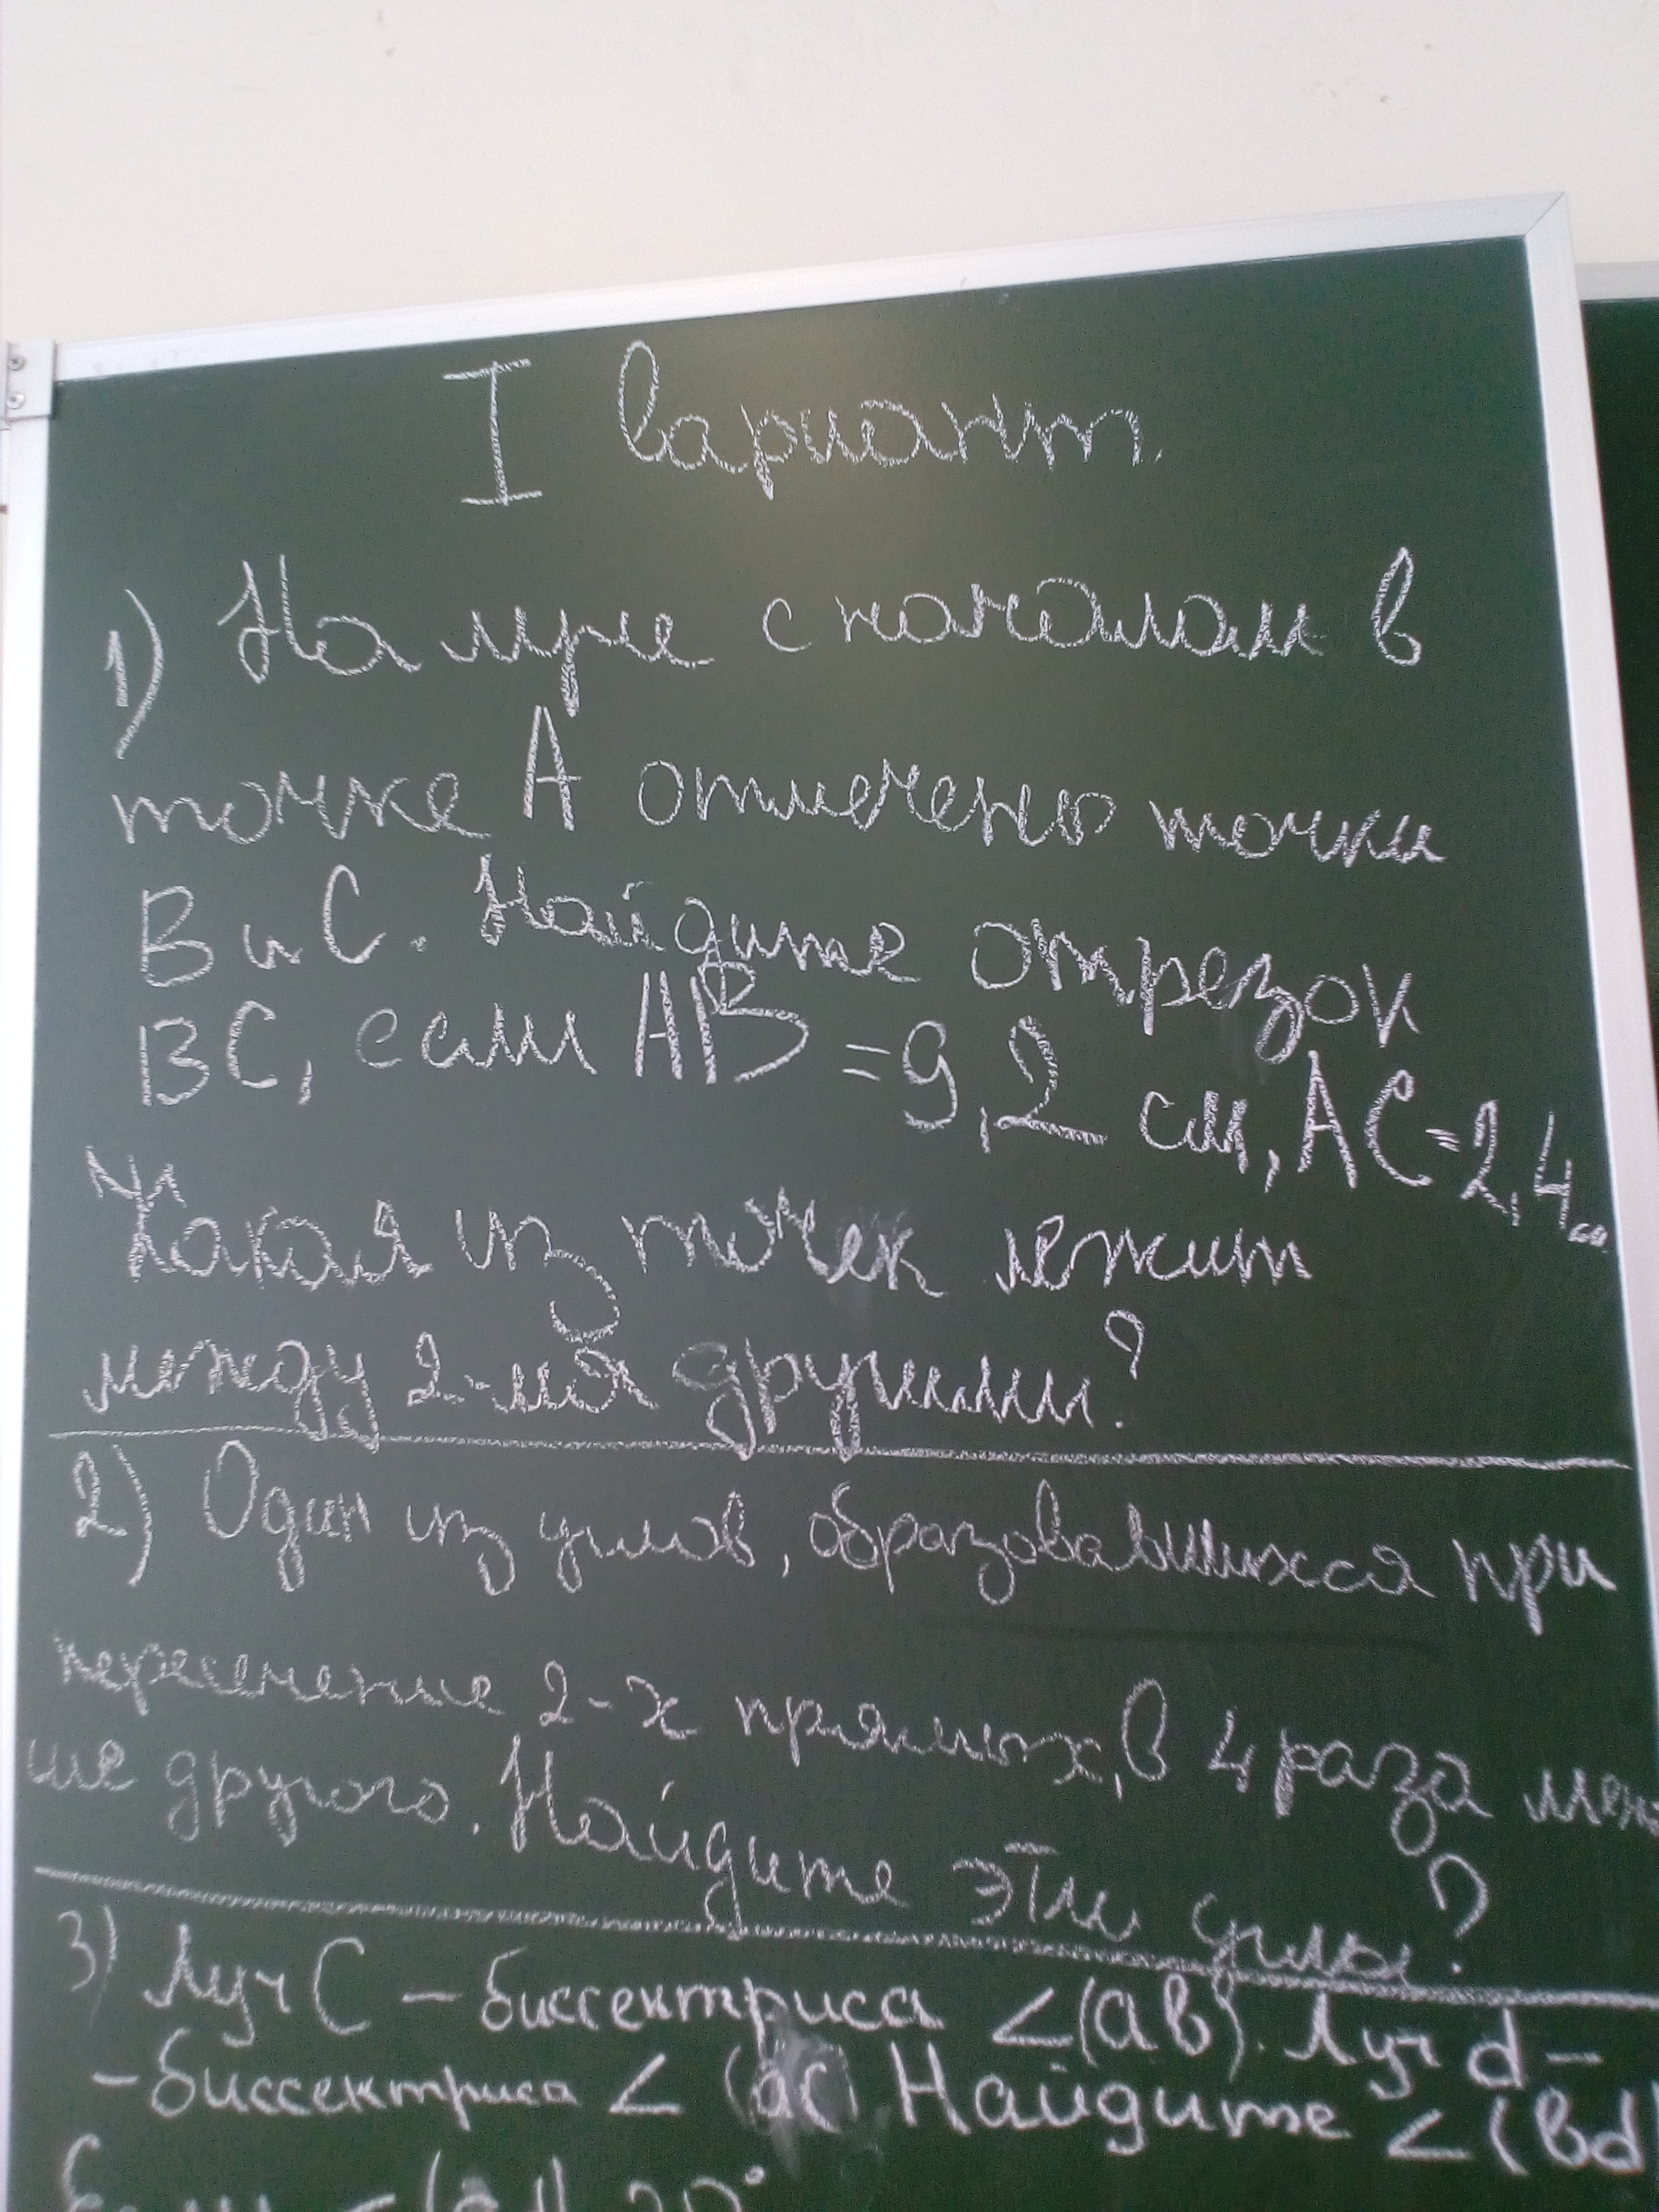 I вариант.
1) На луче с началом в
точке А отмечены точки
В и С. Найдите отрезок
ВС, если АВ = 9,2 см, АС = 2,4 см.
Какая из точек лежит
между 2-мя другими?
2) Один из углов, образовавшихся при
пересечение 2-х прямых, в 4 раза мень
ше другого. Найдите эти углы?
3) Луч С – биссектриса <(ab). Луч d –
– биссектриса < (ac) Найдите < (bd)
Если < 20°